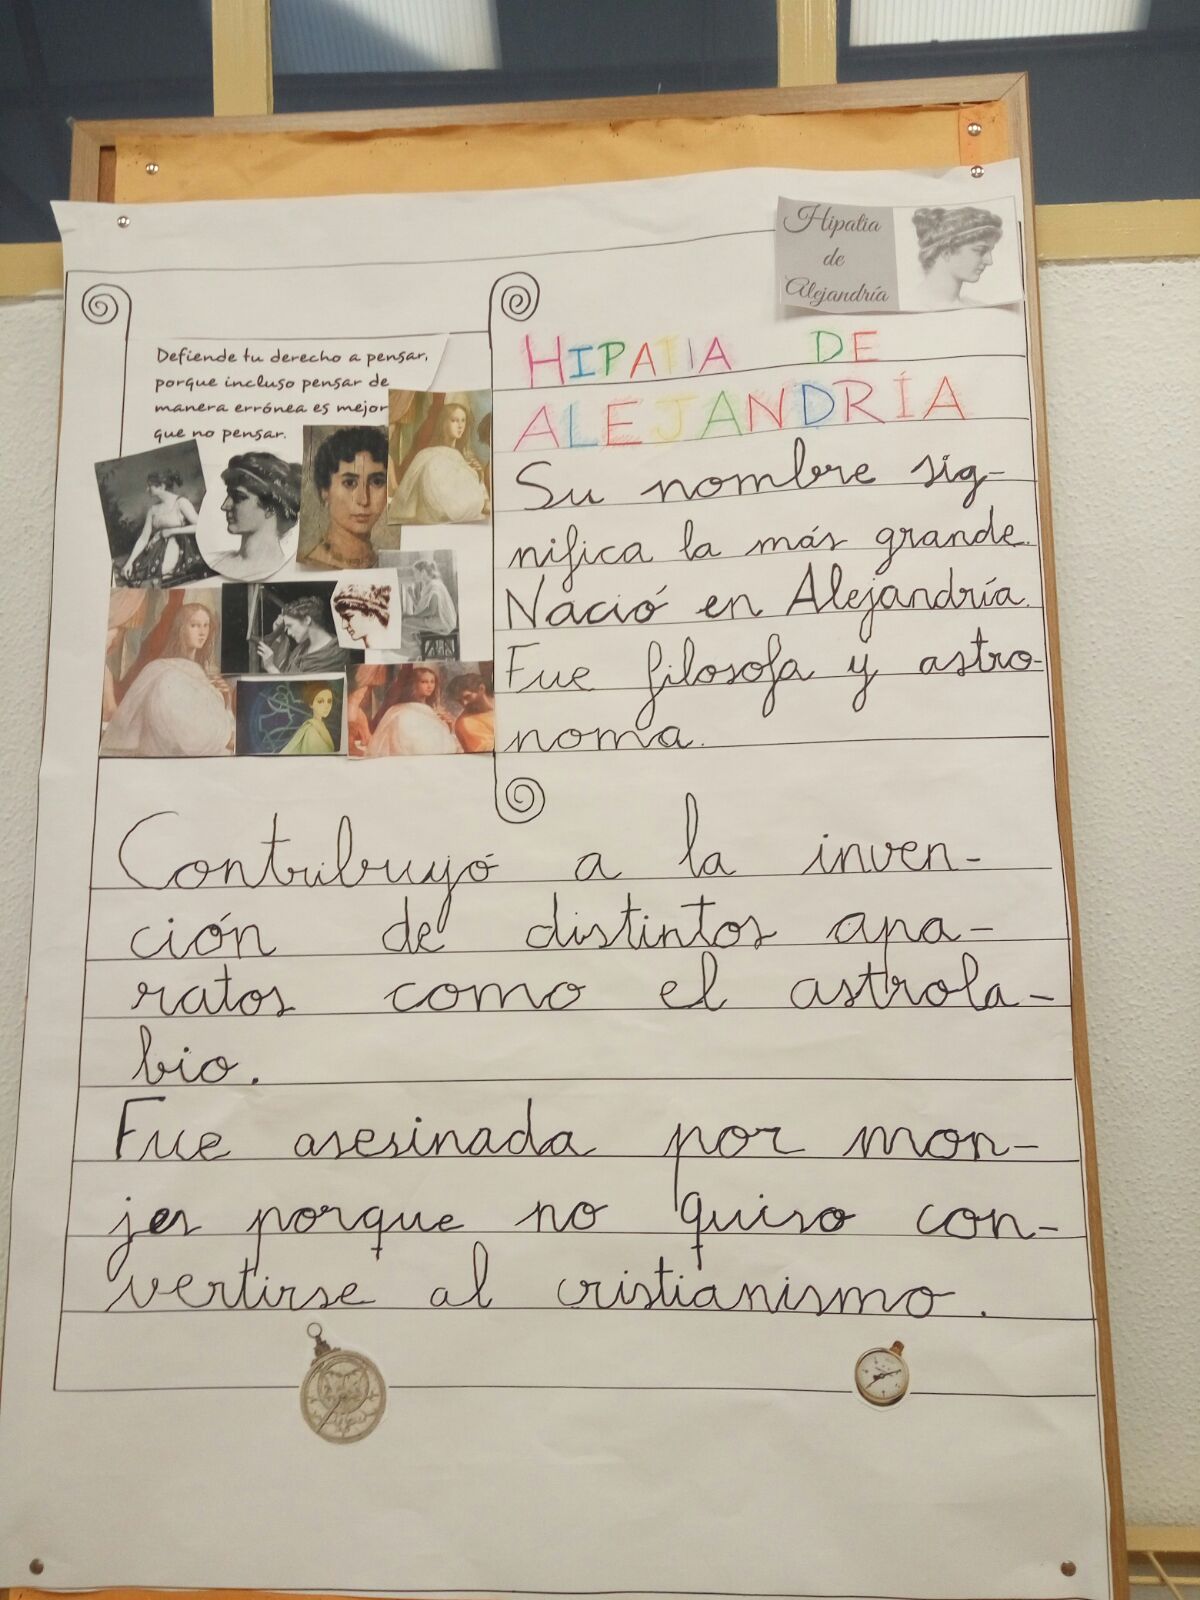 Hipatia
de
Alejandría
Defiende tu derecho a pensar,
porque incluso pensar de
manera errónea es mejor
que no pensar.
HIPATIA DE
ALEJANDRÍA
Su nombre sig-
nifica la más grande.
Nació en Alejandría.
Fue filosofa y astro-
noma.
Contribuyó a la inven-
ción de distintos apa-
ratos como el astrola-
bio.
Fue asesinada por mon-
jes porque no quiso con-
vertirse al cristianismo.